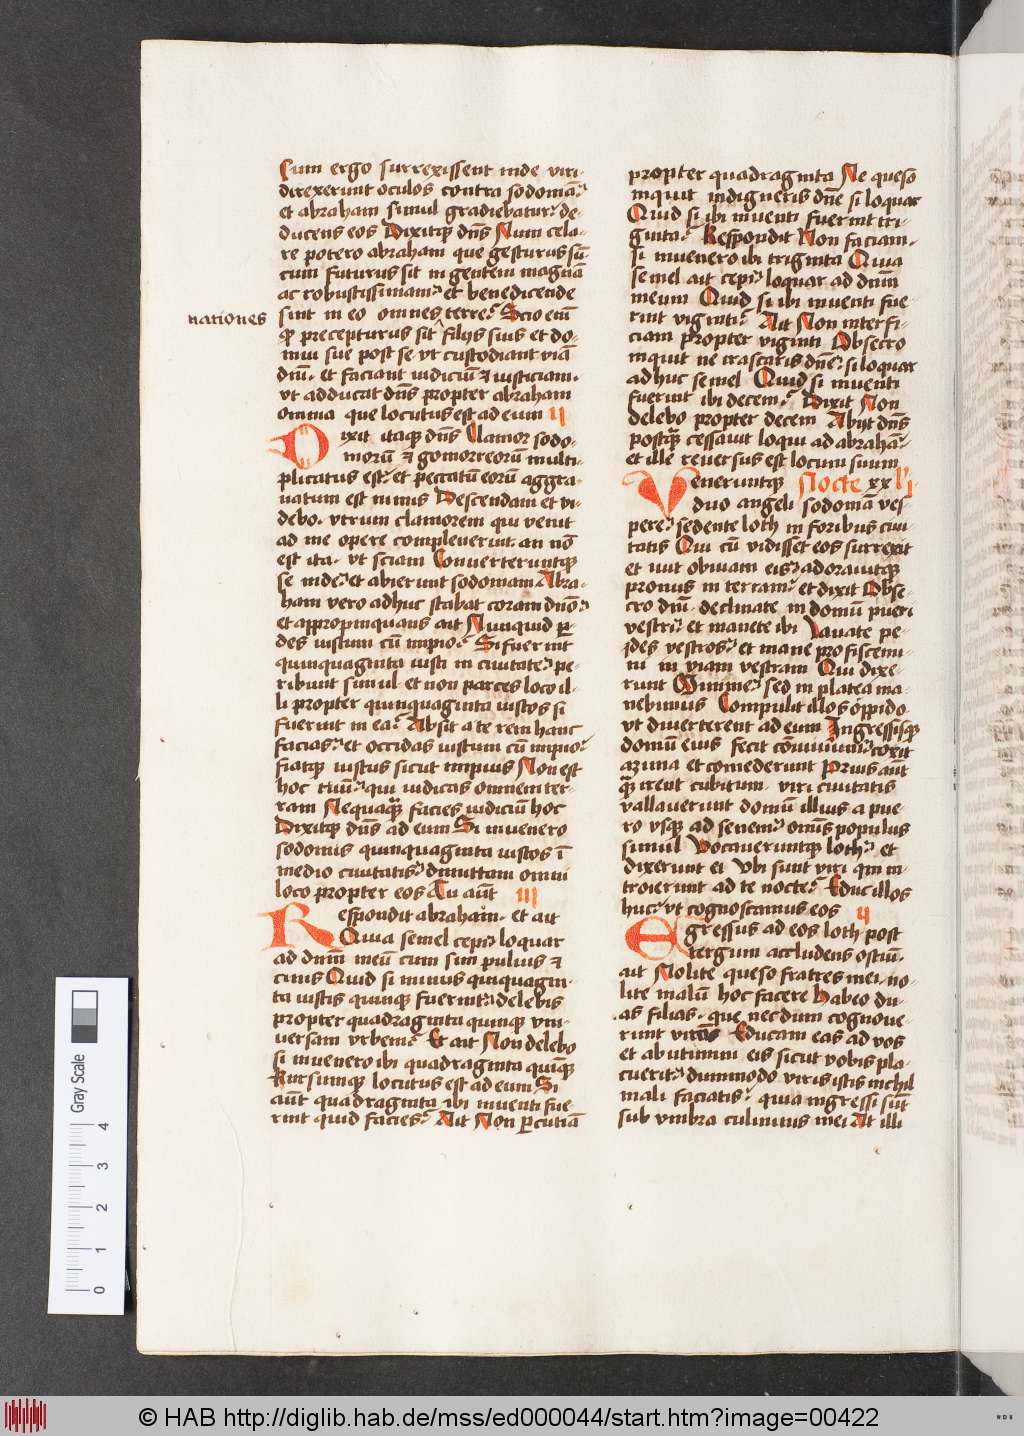 Cum ergo surrexissent inde viri
direxerunt oculos contra sodomā
et abraham simul gradiebatur de-
ducens eos Dixitqꝫ dn̄s Num cela-
re potero abraham que gesturus sū·
cum futurus sit in gentem magnā
ac robustissimam et benedicende
nationes
sint in eo omnes terre Scio em̄
qꝫ precepturus sit filijs suis et do-
mui sue post se vt custodiant viā
dn̄i· et faciant iudiciū ⁊ iusticiam·
vt adducat dn̄s propter abraham
omnia que locutus est ad eum ij
Dixit itaqꝫ dn̄s Clamor sodo-
morū ⁊ gomorreorū multi-
plicatus est· et peccatū eorū aggra-
uatum est nimis Descendam et vi-
debo· vtrum clamorem qui venit
ad me opere compleuerint· an nō
est ita· vt sciam Conuerteruntqꝫ
se inde et abierunt sodomam Abra-
ham vero adhuc stabat coram dn̄o
et appropinquans ait Nunquid ꝑ-
des iustum cū impio Si fuerint
quinquaginta iusti in ciuitate pe-
ribunt simul· et non parces loco il-
li propter quinquaginta iustos si
fuerint in ea Absit a te rem hanc
facias et occidas iustum cū impio
fiatqꝫ iustus sicut impius Non est
hoc tuū qui iudicas omnem ter-
ram Nequaqꝫ facies iudiciū hoc
Dixitqꝫ dn̄s ad eum Si inuenero
sodomis quinquaginta iustos ī
medio ciuitatis dimittam omni
loco propter eos Tu aūt iij
Respondit abraham· et ait
Quia semel cepi loquar
ad dn̄m meū cum sim puluis ⁊
cinis Quid si minus quiquagin-
ta iustis quinqꝫ fuerint delebis
propter quadraginta quinqꝫ vni-
uersam vrbem Et ait Non delebo
si inuenero ibi quadraginta quiqꝫ
Rursumqꝫ locutus est ad eum Si
aūt quadraginta ibi inuenti fue
rint quid facies Ait Non ꝑcutiā
propter quadraginta Ne queso
inquit indigneris dn̄e si loquar
Quid si ibi inuenti fuerint tri-
ginta Respondit Non faciam·
si inuenero ibi triginta Quia
semel ait cepi loquar ad dn̄m
meum Quid si ibi inuenti fue
rint viginti Ait Non interfi-
ciam propter viginti Obsecro
inquit ne irascaris dn̄e si loquar
adhuc semel Quid si inuenti
fuerint ibi decem Dixit Non
delebo propter decem Abijt dn̄s
postqꝫ cessauit loqui ad abrahā
et ille reuersus est locum suum
Veneruntqꝫ Nocte xxlj
duo angeli sodomā ves-
pere sedente loth in foribus ciui
tatis Qui cū vidisset eos surrexit
et iuit obuiam eis adorauitqꝫ
pronus in terram et dixit Obse-
cro dn̄i· declinate in domū pueri
vestri et manete ibi Lauate pe-
des vestros et mane proficscemi-
ni in viam vestram Qui dixe-
runt Minime sed in platea ma-
nebimus Compulit illos oppido
vt diuerterent ad eum Ingressisqꝫ
domū eius fecit conuiuiū coxit
azima et comederunt Prius aūt
qꝫ irent cubitum· viri ciuitatis
vallauerunt domū illius a pue
ro vsqꝫ ad senem omīs populus
simul Vocaueruntqꝫ loth et
dixerunt ei Vbi sunt viri qui in-
troierunt ad te nocte Educ illos
huc vt cognoscamus eos ij
Egressus ad eos loth post
tergum accludens ostiū·
ait Nolite queso fratres mei· no-
lite malū hoc facere Habeo du-
as filias· que necdum cognoue-
runt virūs Educam eas ad vos
et abutimini eis sicut vobis pla-
cuerit dummodo viris istis nichil
mali faciatis quia ingressi sūt
sub vmbra culminis mei At illi
Gray Scale
0 1 2 3 4
© HAB http://diglib.hab.de/mss/ed000044/start.htm?image=00422